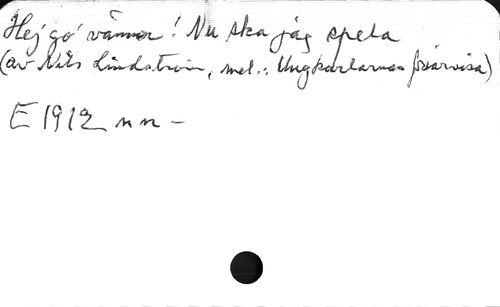 Hej go' vänner! Nu ska jag spela
(av Nils Lindström, mel.: Ungkarlarnas friarvisa)
E 1912 nn –